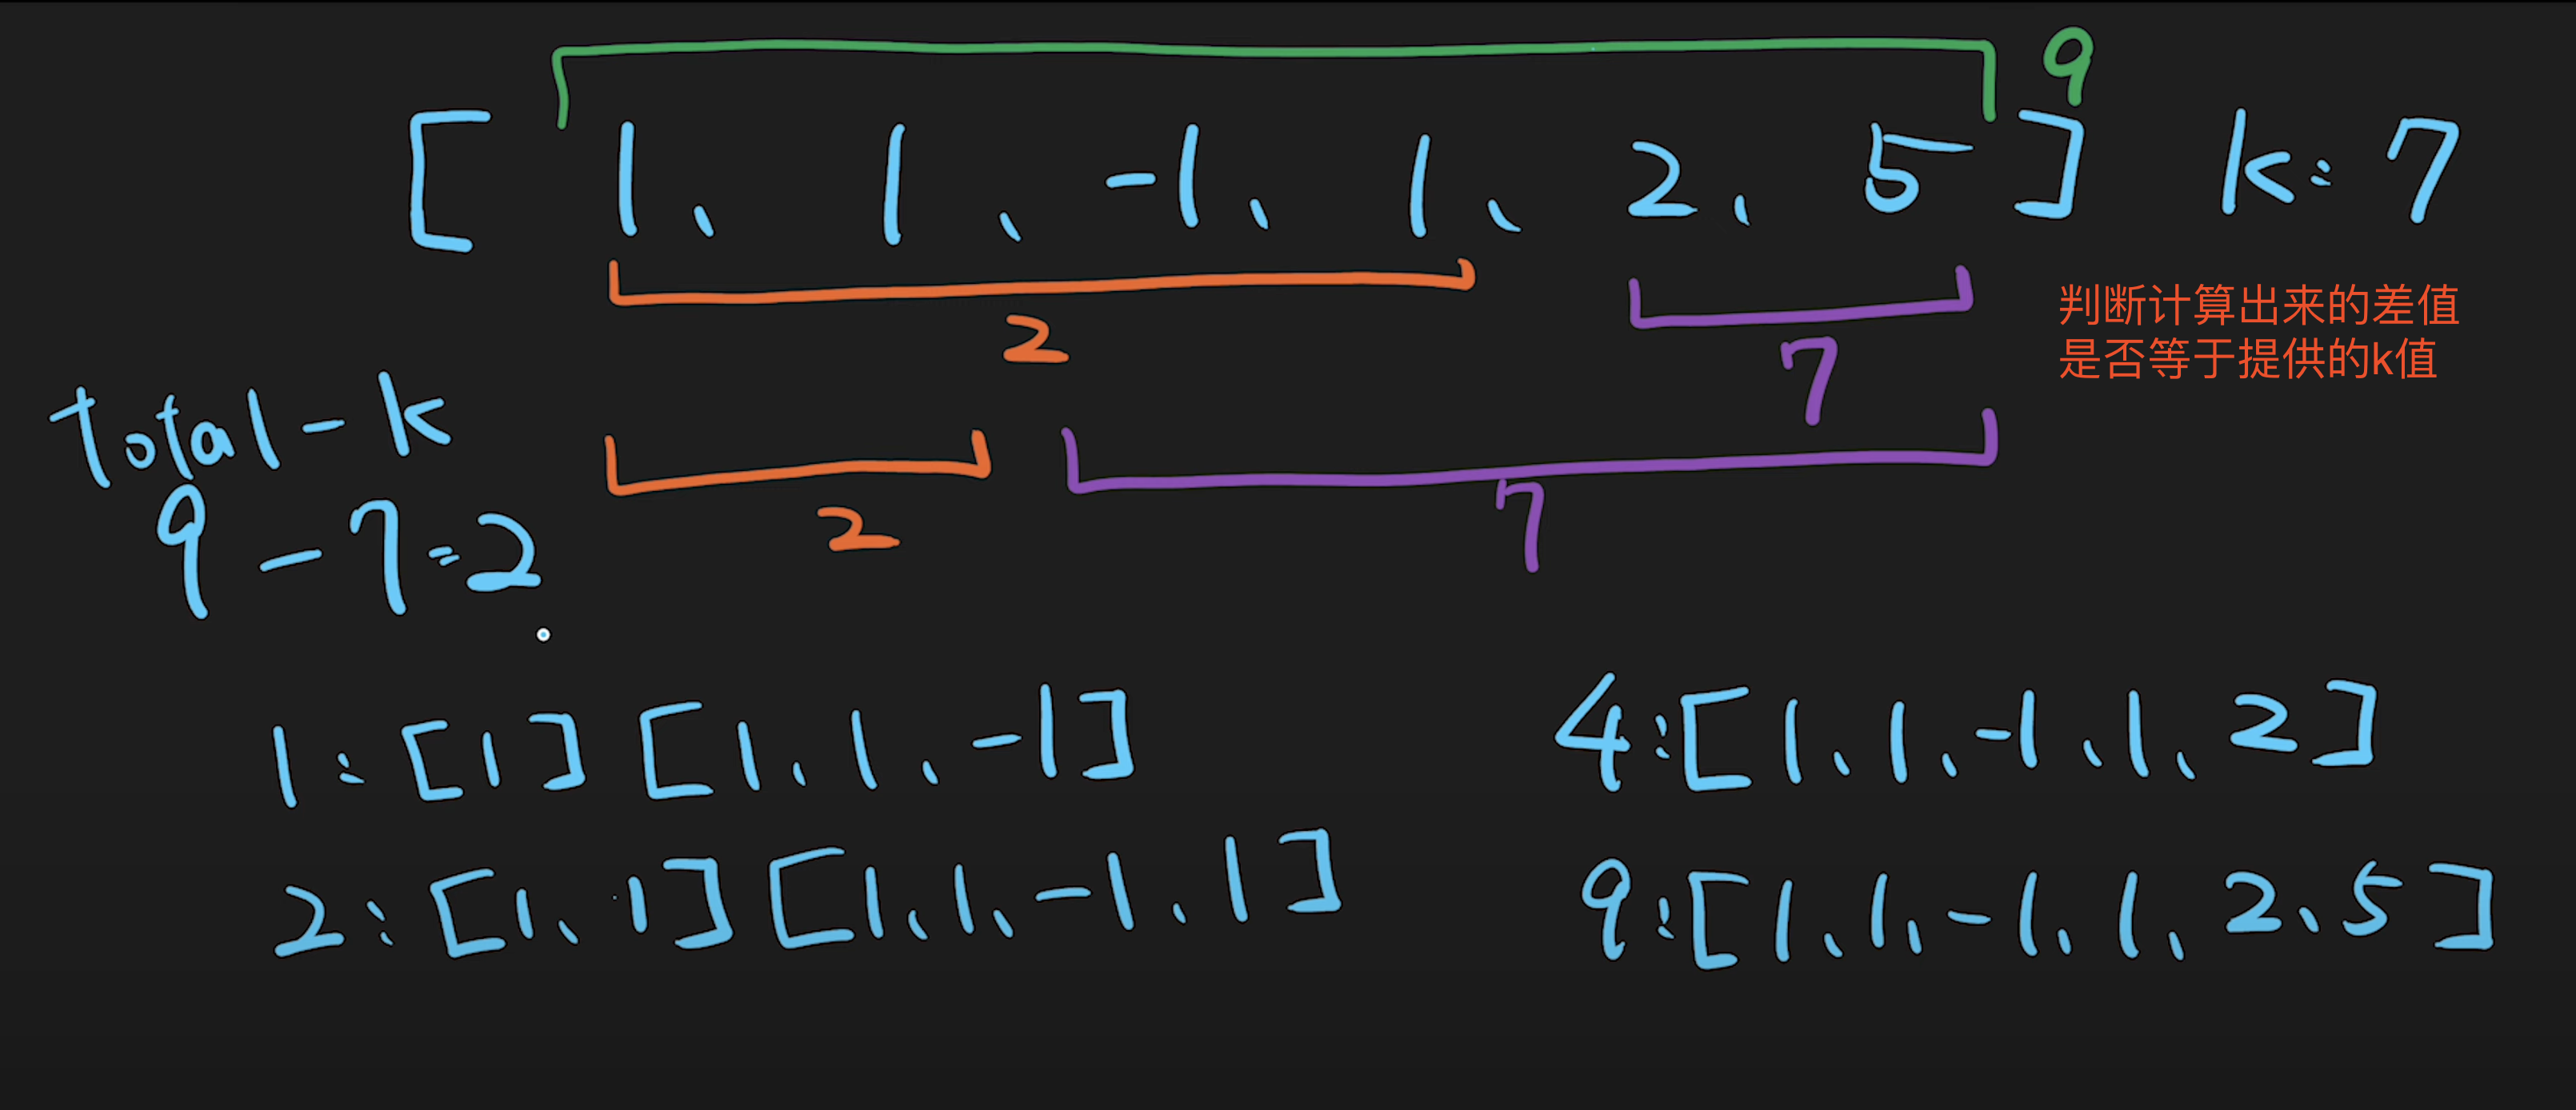 9
[ 1, 1, -1, 1, 2, 5 ] k: 7
判断计算出来的差值
是否等于提供的k值
2
7
total - k
9 - 7 = 2
2
7
1: [1] [1, 1, -1]
4: [1, 1, -1, 1, 2]
2: [1, 1] [1, 1, -1, 1]
9: [1, 1, -1, 1, 2, 5]